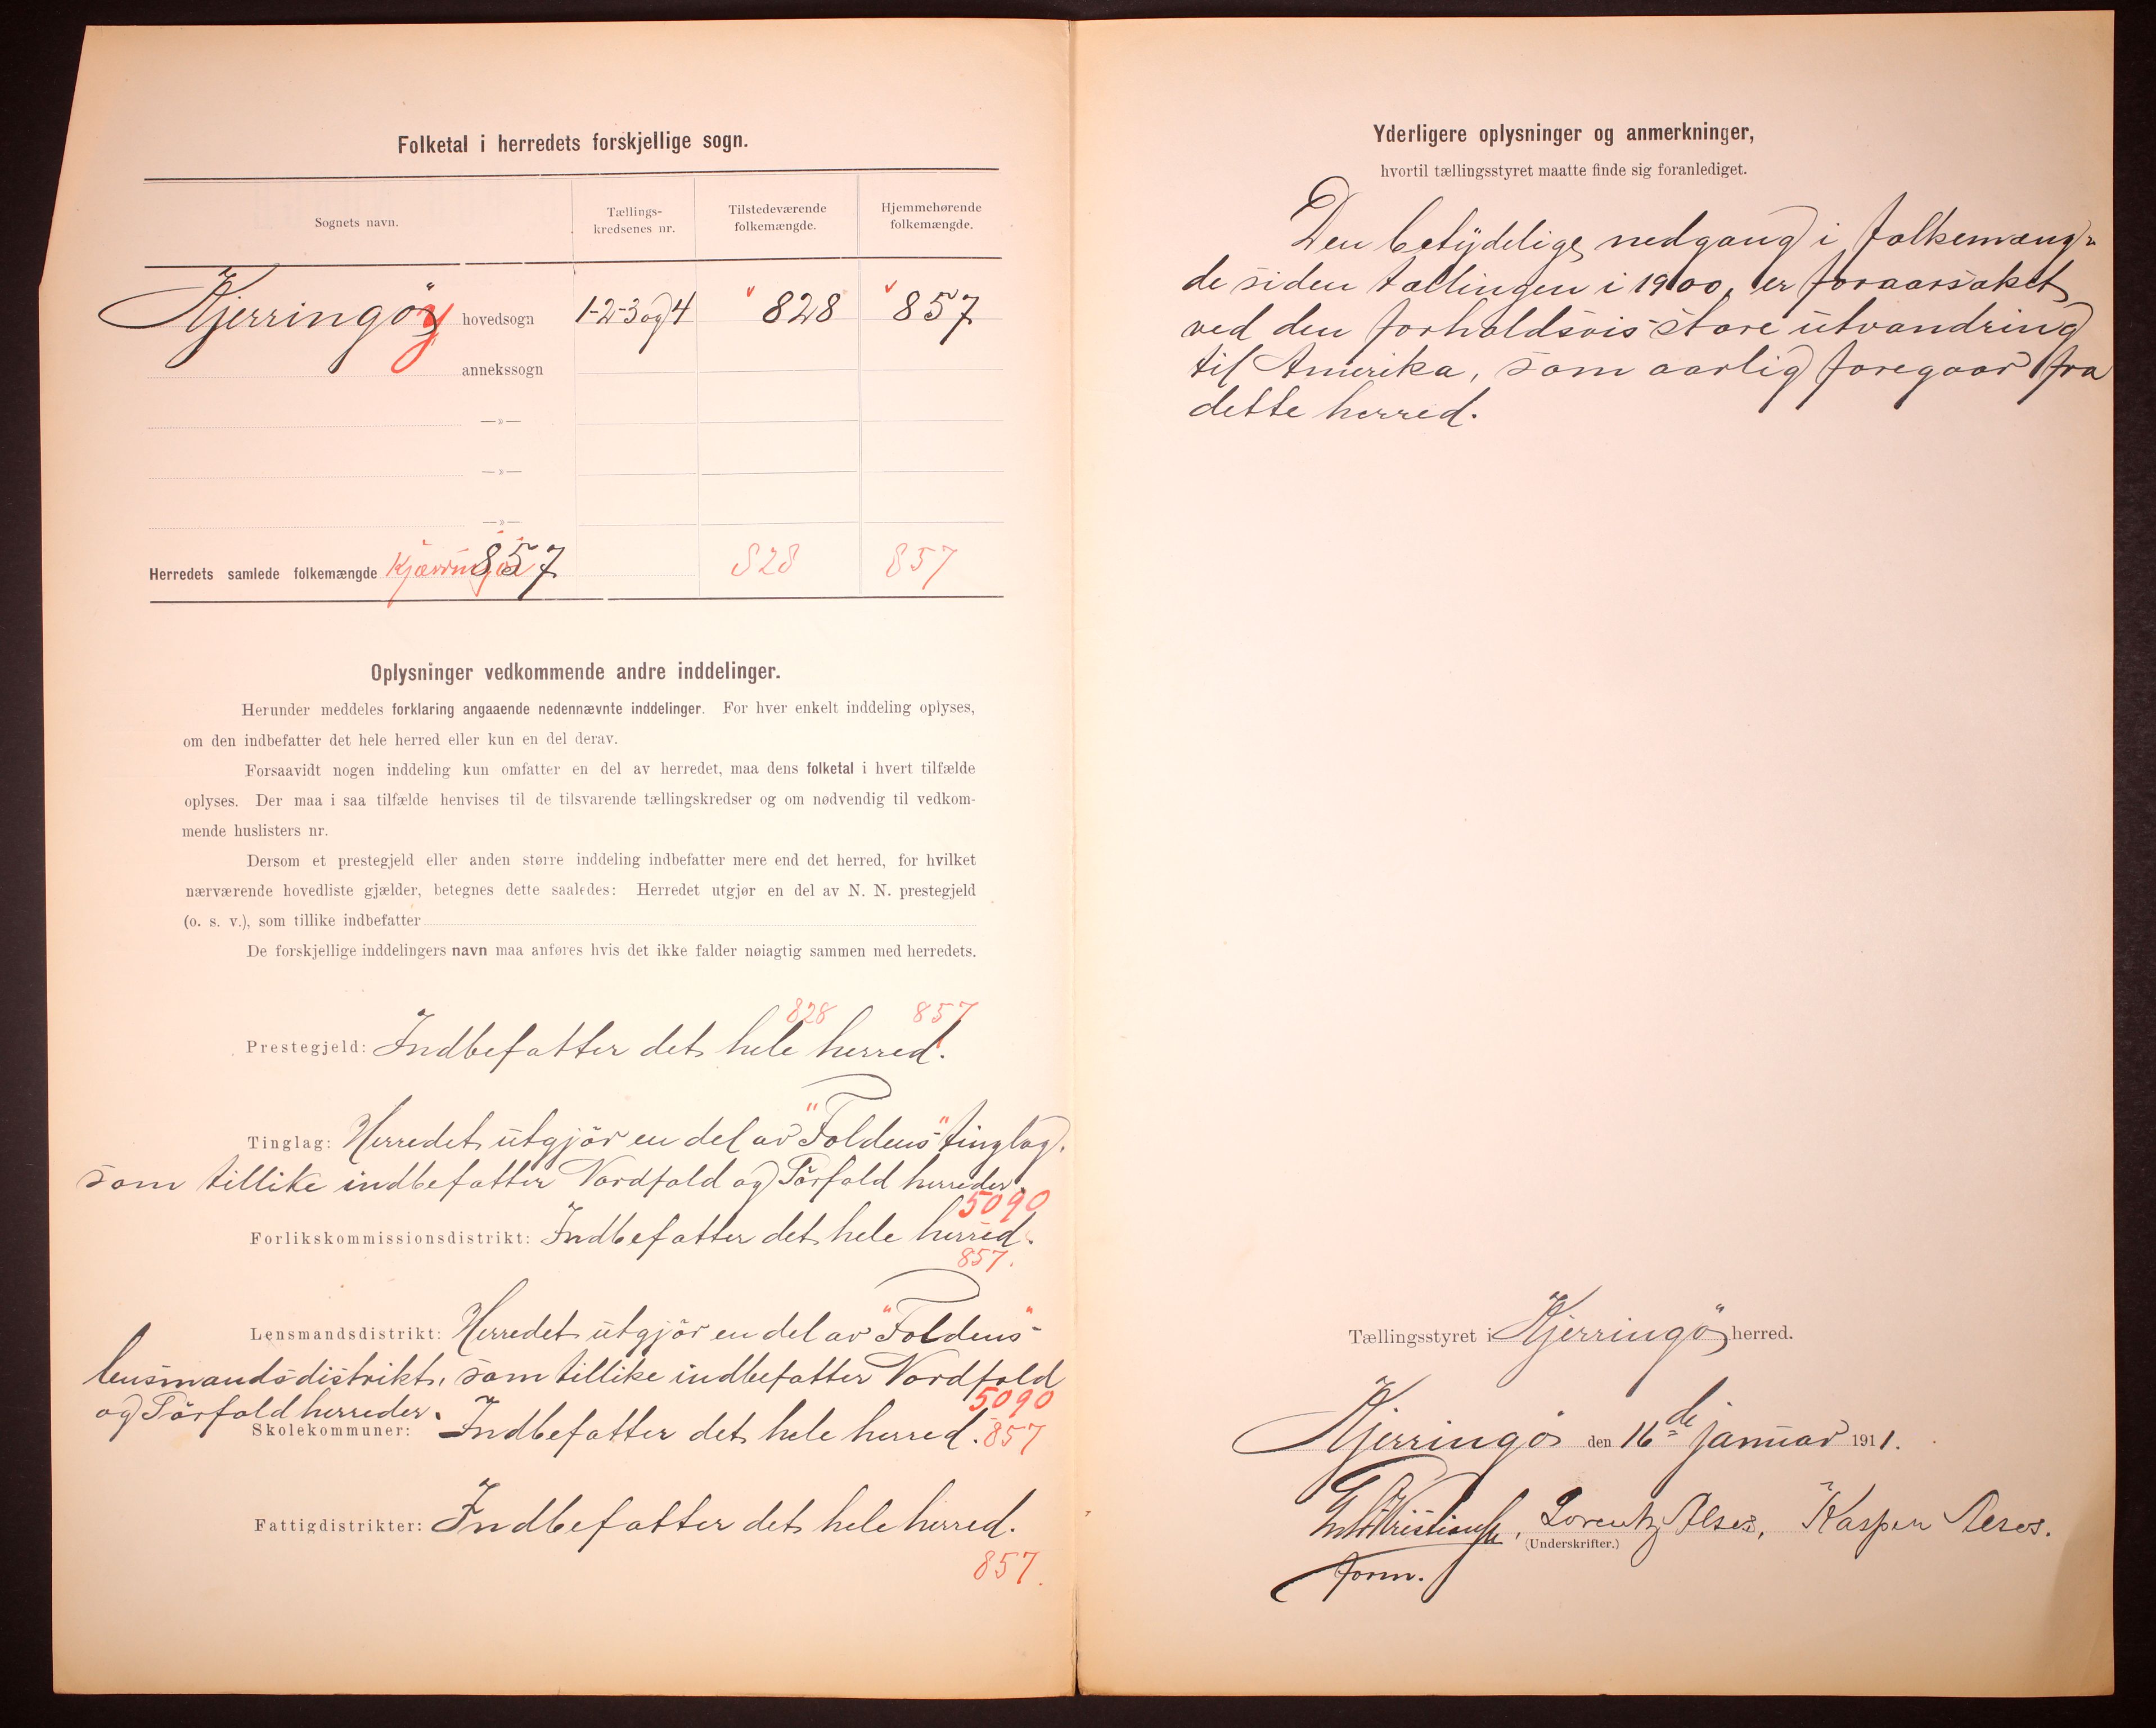 Folketal i herredets forskjellige sogn.
Sognets navn.
Tællings-
kredsenes nr.
Tilstedeværende
folkemængde.
Hjemmehørende
folkemængde.
Kjerringö y hovedsogn 1-2-3 og 4 828 857
annekssogn
—»—
—»—
—»—
Herredets samlede folkemængde Kjærringø 857 828 857
Oplysninger vedkommende andre inddelinger.
Herunder meddeles forklaring angaaende nedennævnte inddelinger. For hver enkelt inddeling oplyses,
om den indbefatter det hele herred eller kun en del derav.
Forsaavidt nogen inddeling kun omfatter en del av herredet, maa dens folketal i hvert tilfælde
oplyses. Der maa i saa tilfælde henvises til de tilsvarende tællingskredser og om nødvendig til vedkom-
mende huslisters nr.
Dersom et prestegjeld eller anden større inddeling indbefatter mere end det herred, for hvilket
nærværende hovedliste gjælder, betegnes dette saaledes: Herredet utgjør en del av N. N. prestegjeld
(o. s. v.), som tillike indbefatter
De forskjellige inddelingers navn maa anføres hvis det ikke falder nøiagtig sammen med herredets.
828 857
Prestegjeld: Indbefatter det hele herred.
Tinglag: Herredet utgjör en del av "Foldens" tinglag,
som tillike indbefatter Nordfold og Sörfold herreder.
5090
Forlikskommissionsdistrikt: Indbefatter det hele herred.
857.
Lensmandsdistrikt: Herredet utgjör en del av "Foldens"
lensmandsdistrikt, som tillike indbefatter Nordfold
og Sörfold herreder. 5090
Skolekommuner: Indbefatter det hele herred. 857
Fattigdistrikter: Indbefatter det hele herred.
857.
Yderligere oplysninger og anmerkninger,
hvortil tællingsstyret maatte finde sig foranlediget.
Den betydelige nedgang i folkemæng-
de siden tællingen i 1900, er foraarsaket
ved den forholdsvis store utvandring
til Amerika, som aarlig foregaar fra
dette herred.
Tællingsstyret i Kjerringö herred.
Kjerringö den 16de januar 1911.
Kristiansen, Lorentz Olsen, Kasper
(Underskrifter.)
form.